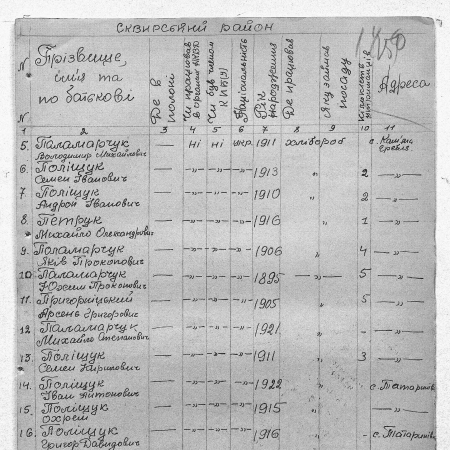 СКВИРСЬКИЙ РАЙОН
N N Прізвище, ім'я та по батькові
Де в полоні
Чи працював в органах НКВД
Чи був членом К
Національність
Рік народження
Де працював
Яку займав посаду
Кількість утриманців
Адреса
1 2 3 4 5 6 7 8 9 10 11
5. Паламарчук Володимир Михайлович — ні ні укр. 1911 хлібороб — с. Кам'яна Гребля
6. Поліщук Семен Іванович — „ „ „ 1913 „ 2 „
7 Поліщук Андрон Іванович — „ „ „ 1910 „ 2 „
8 Петрук Михайло Олександрович — „ „ „ 1916 „ 1 „
9. Паламарчук Яків Прокопович — „ „ „ 1906 „ 4 „
10 Паламарчук Юхим Прокопович — „ „ „ 1895 „ 5 „
11. Пригорницький Арсень Григорович — „ „ „ 1905 „ 5 „
12 Паламарчук Михайло Степанович — „ „ „ 1921 „ - „
13. Поліщук Семен Кирилович — „ „ „ 1911 „ 3 „
14. Поліщук Іван Антонович — „ „ „ 1922 „ с. Татаринівка
15. Поліщук Охрем — „ „ „ 1915 „ „
16. Поліщук Григор Давидович — „ „ „ 1916 „ - с. Татаринів